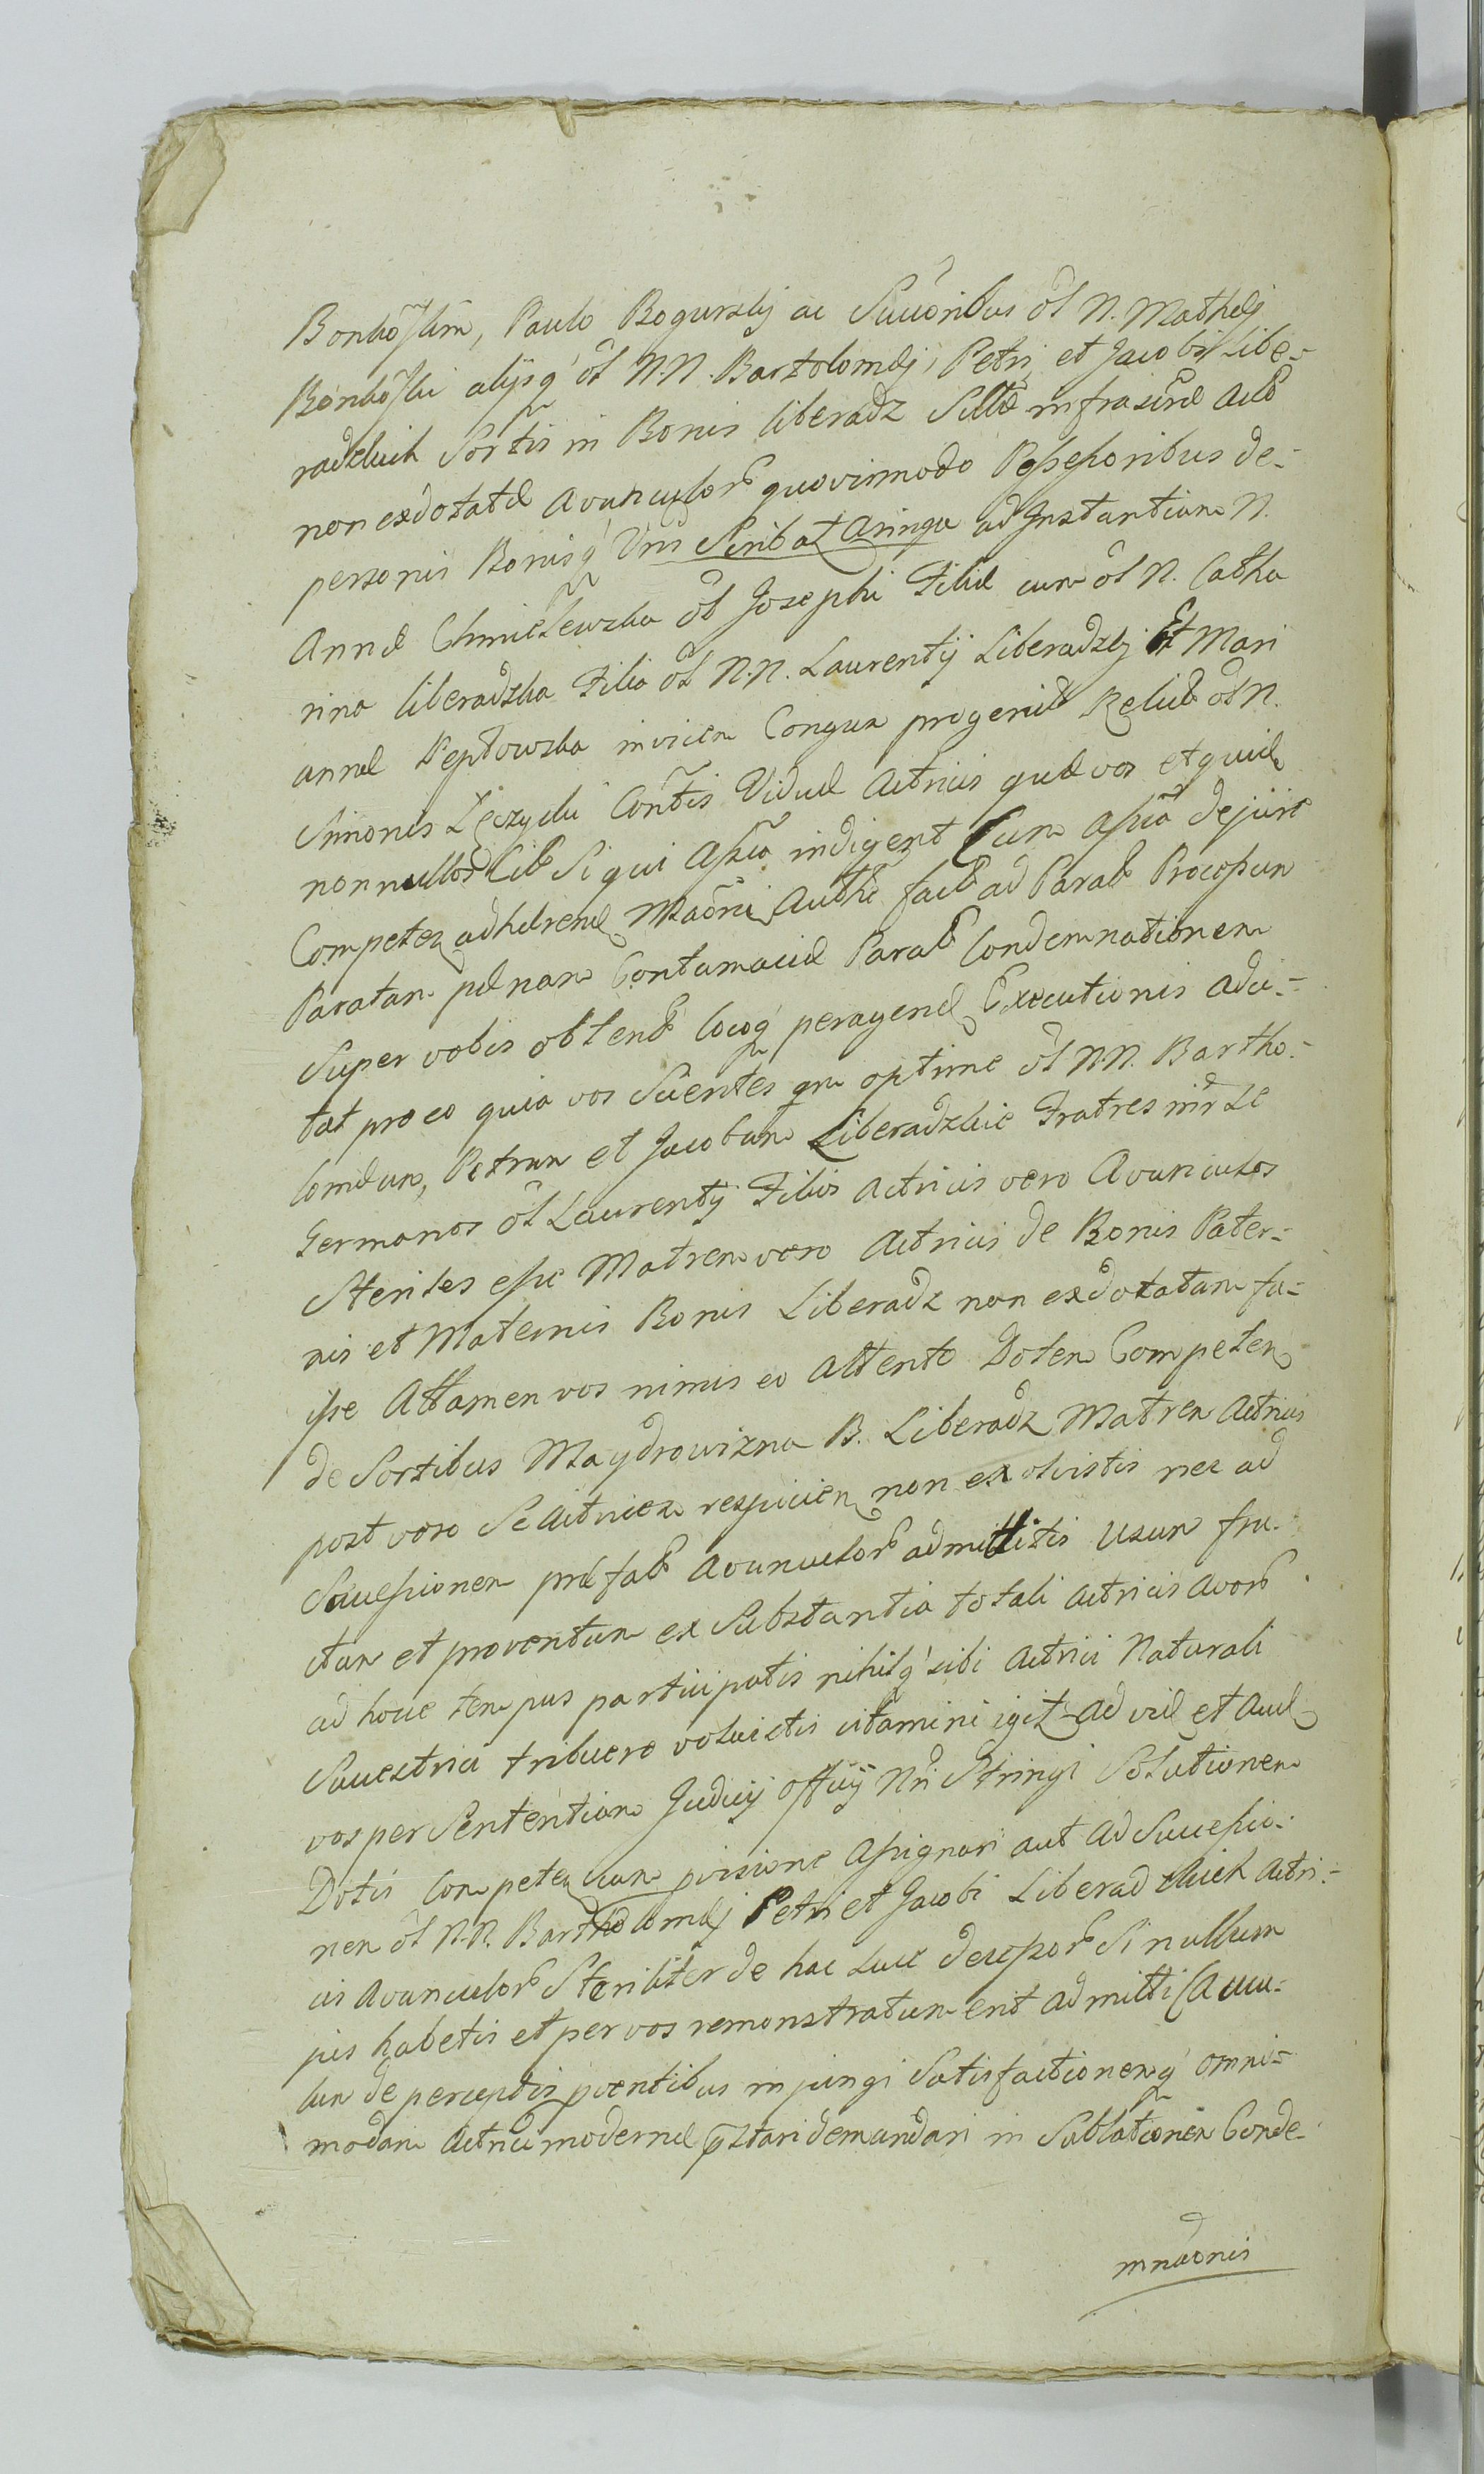 Bonkowskim, Paulo Bogurskij ac Succōribus ōl N. Mathæj
Bonkowski alijsq' ōl N.N. Bartolomæj, Petri et Jacobi Libe-
radzkich Sortis in Bonis liberadz Sitæ infrascr Act
non exdotatæ avunculor quovismodo Possessoribus de-
personis Bonisq' Vris Scribat Aringa ad Instantiam N.
Annæ Chmielewska ōl Josephi Filiæ cum ōl N. Catha
rina liberadzka Filia ōl N.N. Laurentij Liberadzkj Et Mari
annæ Peptowska invicem Coniugu progenit Relict ōl N.
Simonis Lęczycki Conītis Viduæ Actricis quæ vos et quid
nonnullos Cit Si qui Assia indigent Cum assīa de jure
Competen adhærend Maōni Autthe fact ad Parat Procossum
Paratam pænam Contumaciæ Parat Condemnationem
Super vobis obtent locoq' peragend Executionis adci-
tat pro eo quia vos Scientes qm optime ōl N.N. Bartho-
lomæum, Petrum et Jacobum Liberadzkie Fratres inr se
Germanos ōl Laurentij Filios Actricis vero Avunculos
Steriles esse Matrem vero Actricis de Bonis Pater-
nis et Maternis Bonis Liberadz non exdotatam fu-
isse Attamen vos nimis eo attento Dotem Competen
de Sortibus Maydrowizna B. Liberadz Matrem Actricis
post vero Se Actricem respicien non exolvistis nec ad
Successionem præfat avunculor admittitis Usum fru-
ctum et proventum ex Substantia totali Actricis avor
ad hocce tempus participatis nihilq' sibi Actrici Naturali
Succestrici tribuere voluistis citamini igit ad vid et aud
vos per Sententiam Judicij Officij Nri Stringi Solutionem
Dotis Competen cum pvisione assignari aut ad Successio-
nem ōl N.N. Bartholomæj Petri et Jacobi Liberadzkich Actri-
cis Avunculor Steriliter de hac Luce decessor Si nullum
jus habetis et per vos remonstratum erit admitti Calcu-
lum de perceptis pventibus injungi Satisfactionemq' omni-
modam Actrici modernæ pstari demandari in Sublationem Conde-
mnaōnis